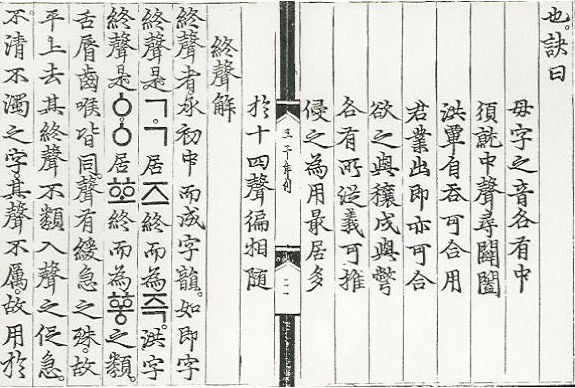 也。訣曰
母字之音各有中
須就中聲尋闢闔
洪覃自吞可合用
君業出即亦可合
欲之與穰戌與彆
各有所從義可推
侵之為用最居多
於十四聲徧相隨
終聲解
終聲者承初中而成字韻。如即字
終聲是ㄱ。ㄱ居즈終而為즉。洪字
終聲是ㆁ。ㆁ居ᅘᅩ終而為ᅘᅩᆼ之類。
舌脣齒喉皆同。聲有緩急之殊。故
平上去其終聲不類入聲之促急。
不清不濁之字。其聲不厲。故用於